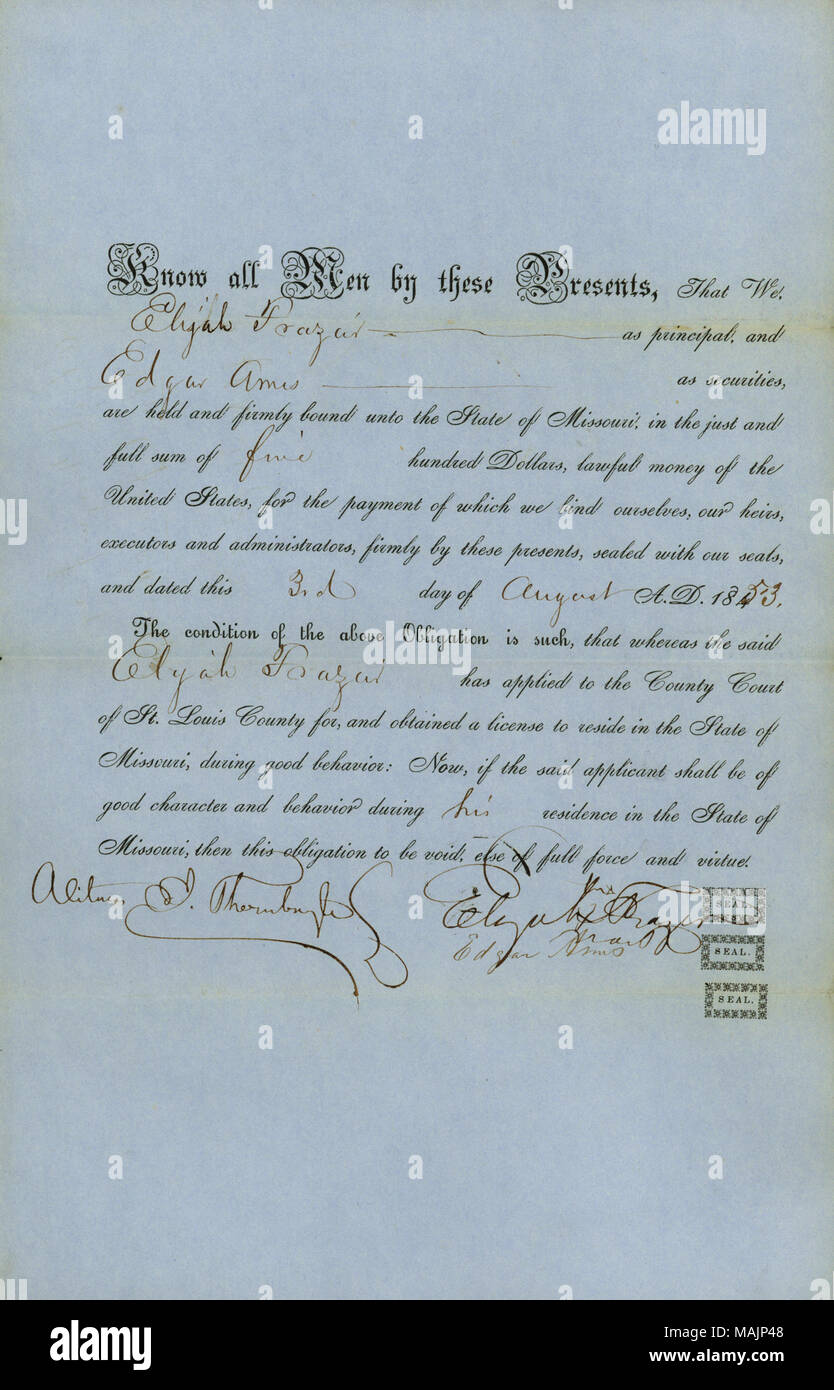 Know all Men by these Presents, That We,
Elijah Frazar as principal, and
Edgar Ames as securities,
are held and firmly bound unto the State of Missouri, in the just and
full sum of five hundred Dollars, lawful money of the
United States, for the payment of which we bind ourselves, our heirs,
executors and administrators, firmly by these presents, sealed with our seals,
and dated this 3rd day of August A.D. 1853.
The condition of the above Obligation is such, that whereas the said
Elijah Frazar has applied to the County Court
of St. Louis County for, and obtained a license to reside in the State of
Missouri, during good behavior: Now, if the said applicant shall be of
good character and behavior during his residence in the State of
Missouri, then this obligation to be void, else of full force and virtue.
his
Elijah X Frazar SEAL.
mark
Edgar Ames SEAL.
SEAL.
a alamy stock photo
alamy
Image ID: MAJP48
www.alamy.com